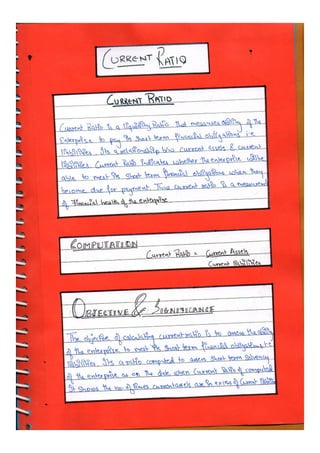 CURRENT RATIO
CURRENT RATIO
Current Ratio is a liquidity Ratio that measures ability of the
Enterprise to pay its short term financial obligations i.e
liabilities. Its a relationship b/w current Assets & current
liabilities. Current Ratio indicates whether the enterprise will be
able to meet its short term financial obligations when they
become due for payment. Thus current ratio is a measurement
of Financial health of the enterprise
COMPUTATION
Current Ratio = Current Assets
Current liabilities
OBJECTIVE & SIGNIFICANCE
The objective of calculating current ratio is to assess the ability
of the enterprise to meet its short term financial obligations i.e
liabilities. Its a ratio computed to assess short term solvency
of the enterprise as on the date when Current Ratio is computed
It shows the no. of times current assets are in excess of Current liabilities